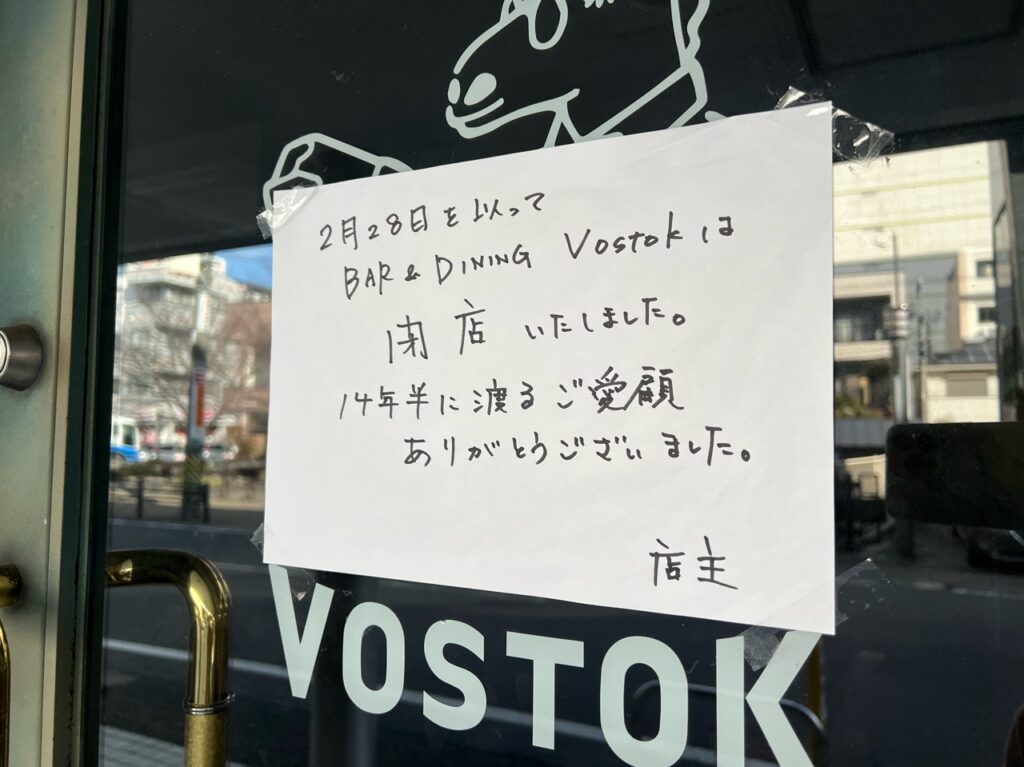 2月28日を以って
BAR & DINING Vostokは
閉店いたしました。
14年半に渡るご愛顧
ありがとうございました。
店主
VOSTOK